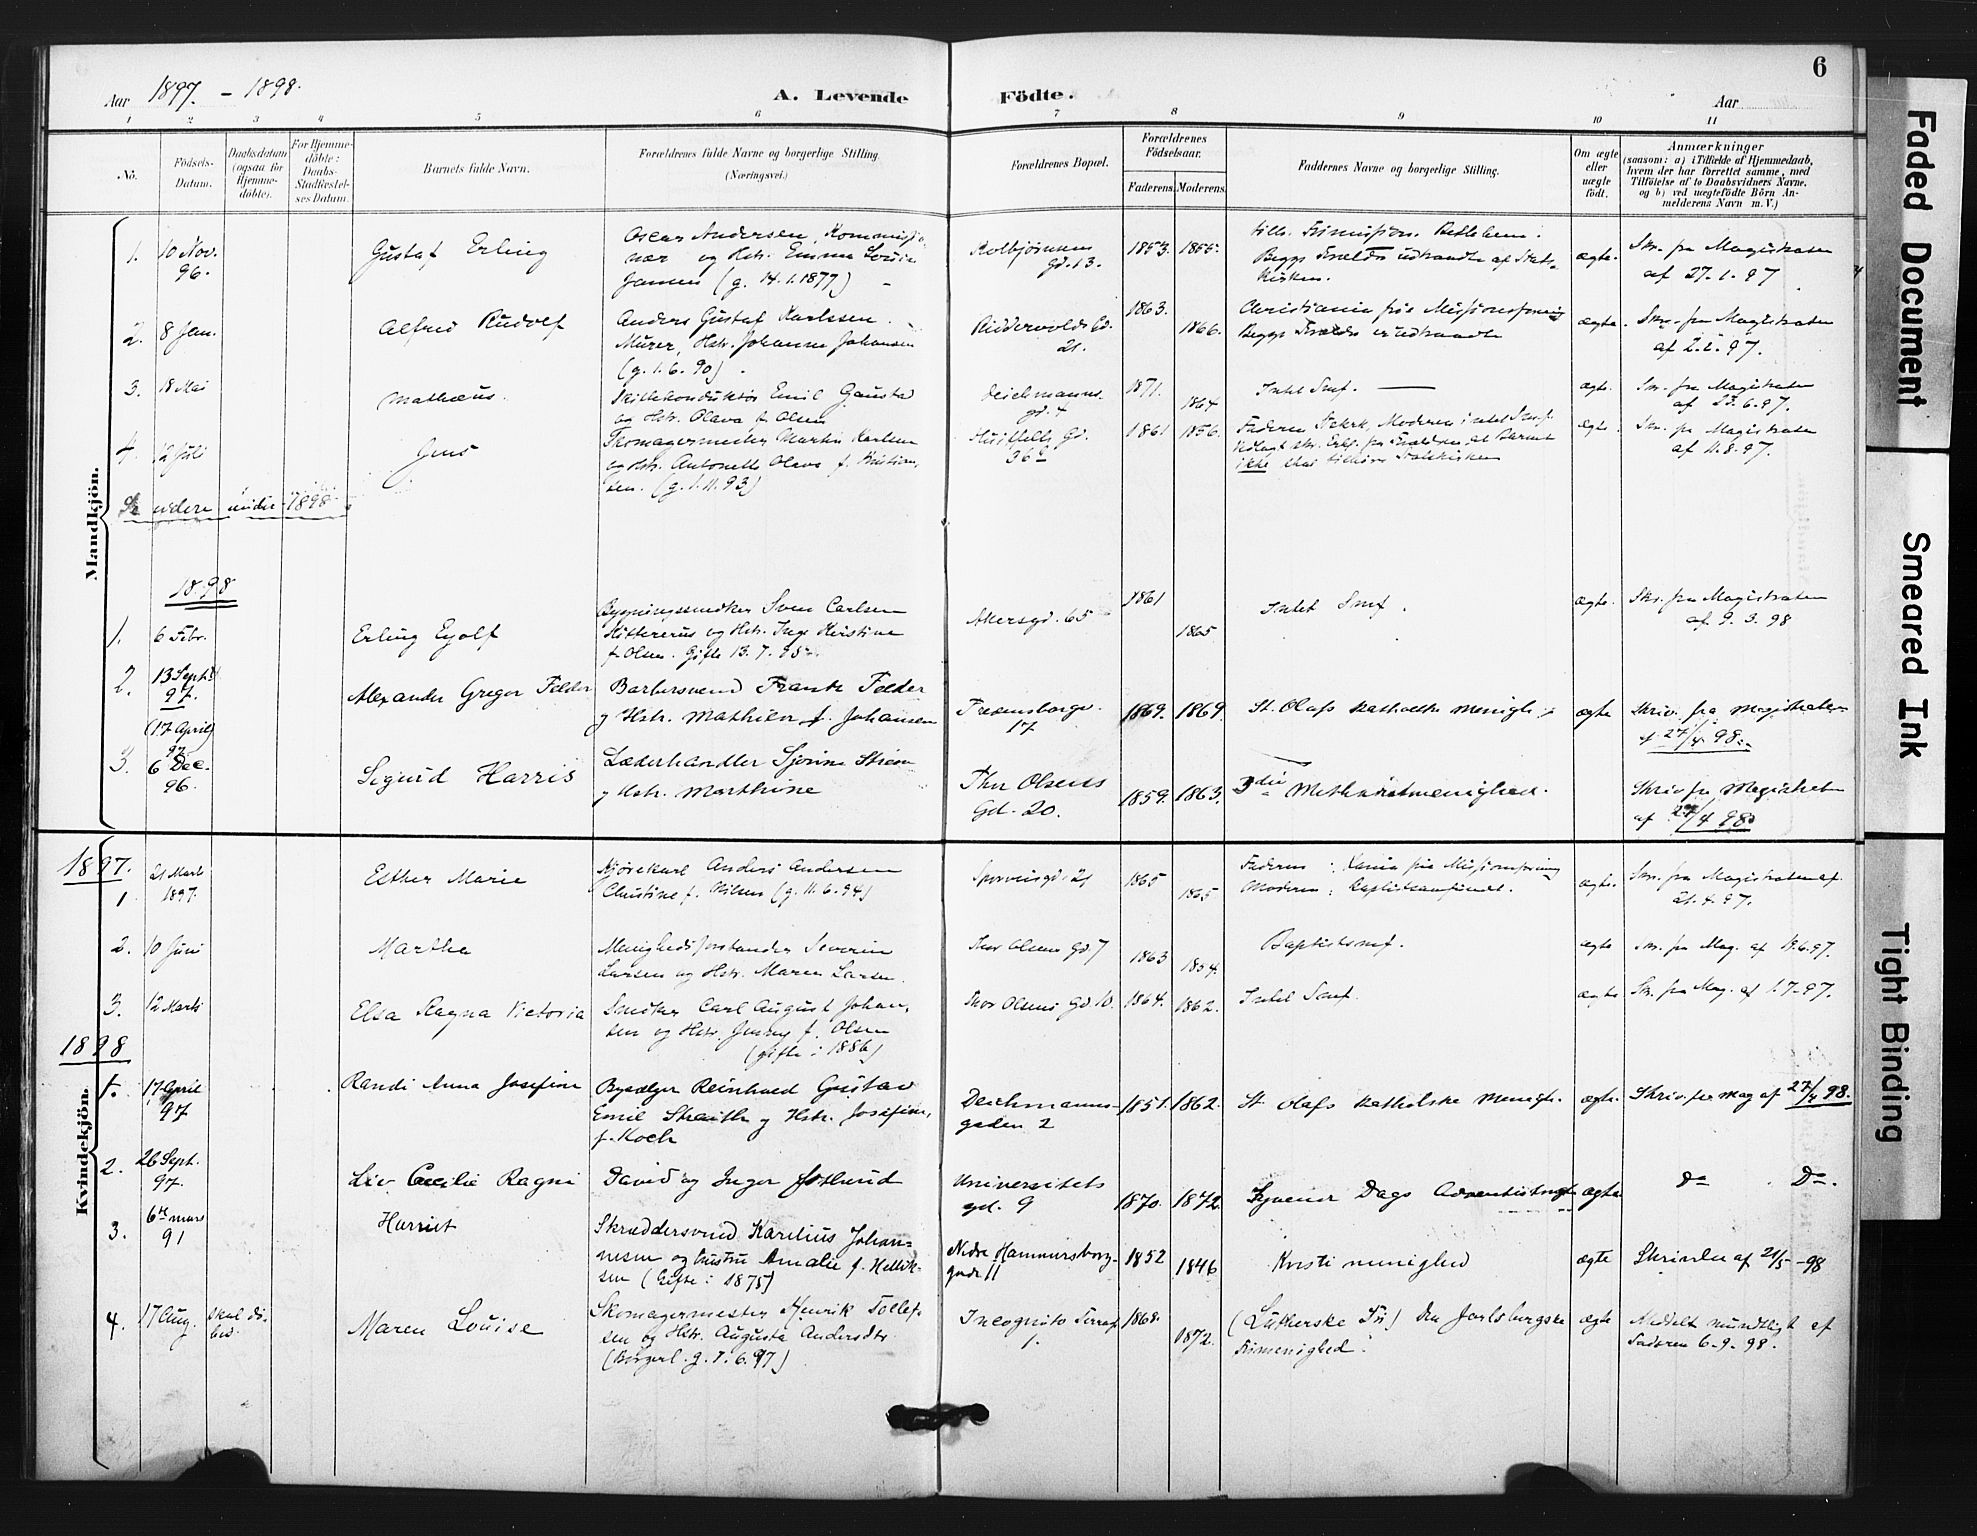 6
Aar 1897. - 1898.
A. Levende Födte.
Aar
1 2 3 4 5 6 7 8 9 10 11
No.
Födsels-Datum.
Daabsdatum (ogsaa for Hjemmedöbte).
For Hjemmedöbte: Daabs-Stadfæstelses Datum.
Barnets fulde Navn.
Forældrenes fulde Navne og borgerlige Stilling.
(Næringsvei.)
Forældrenes Bopæl.
Forældrenes Födselsaar.
Faderens. Moderens.
Faddernes Navne og borgerlige Stilling.
Om ægte eller uægte födt.
Anmærkninger
(saasom: a) i Tilfælde af Hjemmedaab,
hvem der har forrettet samme, med
Tilföielse af to Daabsvidners Navne,
og b) ved uægtefödte Börn An-
melderens Navn m. V.)
Mandkjön.
1. 10 Nov. 96. Gustaf Erling
Oscar Andersen, Kommissio-
nær og Hstr. Emma Lovise
Jansen (g. 14.1.1877)
Kolbjørnsens Gd. 13. 1853. 1855.
Frimission. Bethlehem.
Begge Forældre udtraadte af Stats-
kirken.
ægte. Skr. fra Magistraten
af 27.1.97
2. 8 Jan. Alfred Rudolf
Anders Gustaf Karlsen
Murer, Hstr. Johanne Johansen
(g. 1.6.90)
Riddervolds Gd. 21. 1863. 1866.
Christiania frie Missionsforening
Begge Forældre er udtraadte
ægte. Skr. fra Magistraten
af 2.2.97.
3. 18 Mai Mathæus.
Emil Gaustad
og Hstr. Olava f. Olsen
Deichmanns gd. 4 1871. 1864
Intet Smf.
ægte. Skr. fra Magistraten
af 23.6.97.
4. 12 Juli Jens
Skomagermester Martin Karlsen
og Hstr. Antonette Olava f. Kristian-
sen. (g. 1.11.93)
Huitfelts Gd. 36 1861 1856.
Faderen Statsk., Moderen i intet Smf.
Vedlagt skr. Erkl. fra Forældrene, at Barnet
ikke skal tilhøre Statskirken
ægte. Skr. fra Magistraten
af 11.8.97.
Se videre under 1898
1898
1. 6 Febr. Erling Eyolf
Bygningssnedker Sven Carlsen
og Hstr. Inga Kristine
f. Olsen. Gifte 13.7.95.
Akersgd. 65 1861 1865
Intet Smf.
ægte. Skr. fra Magistraten
af 9.3.98
2. 13 Sept. 97. Alexander Gregor Felder
Barbersvend Frantz Felder
og Hstr. Mathilda f. Johansen
Fredensborgv. 17 1869. 1869.
St. Olafs katholske menigh.
ægte Skriv. fra Magistraten
af 27/4 98.
(17 April) 97
3. 6 Dec. 96. Sigurd Harris
Læderhandler
og Hstr. Marthine
Thv. Olsens Gd. 20. 1859. 1863.
3die Methodistmenighed.
Skriv. fra Magistraten
af 27/4 98
Kvindekjön.
1897.
1 21 Marts 1897. Esther Marie
Kjørekarl Anders Andersen
Christine f. Nilsen (g. 11.6.94)
1865 1865
Faderen: Xania frie Missionsforening
Moderen: Baptistsamfundet.
ægte. Skr. fra Magistraten af
21.4.97.
2. 10 Juni Martha
Menighedsforstander Severin
Larsen og Hstr. Maren Larsen.
Thor Olsens Gd 7 1863 1854.
Baptistsmf.
ægte Skr. fra Mag. af 19.6.97.
3. 12 Marts Elsa Ragna Victoria
Snedker Carl August Johan-
sen og Hstr. Jenny f. Olsen
(gifte i 1886)
Thor Olsens Gd 10. 1864. 1862.
Intet Smf.
ægte Skr. fra Mag. af 1.7.97.
1898
1. 17 April 97 Randi Anna Josefine
Bysælger Reinhard Gustav
Emil og Hstr. Josefine,
f. Koch
Deichmanns-
gaden 2 1851. 1862.
St. Olafs katholske menigh.
ægte. Skriv. fra Mag af 27/4 98.
2. 26 Sept. 97. Liv Cecilie Ragni
David og Inger Østlund
Universitets
gd. 9 1870. 1872.
Syvende Dags Adventistmgh
ægte Do Do.
3. 6te mars 91 Harriet
Skræddersvend Karelius Johan=
nesen og hustru Amalie f. Hellik-
sen (Gifte i 1875)
Nedre Hammersborg-
gade 11 1852 1846
Kristi menighed
ægte Skrivelse af 21/5 -98
4. 17 Aug. skal døbes. Maren Lovise
Skomagermester Henrik Tollef-
sen og Hstr. Augusta Andersdtr.
(Borgerl. g. 7.6.97)
Incognito Terrasse
1. 1868. 1872.
(Lutherske Fri) Den Jarlsbergske
Frimenighed.
ægte Meddelt mundtligt af
Faderen 6-9-98.
Faded Document
Smeared Ink
Tight Binding